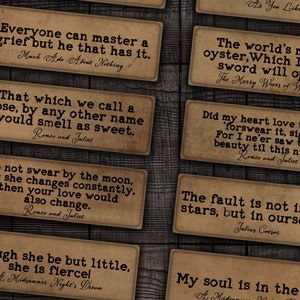 As You Like
Everyone can master a
grief but he that has it.
Much Ado About Nothing
The world's m
oyster, Which I
sword will o
The Merry Wives of W
That which we call a
ose, by any other name
would smell as sweet.
Romeo and Juliet
Did my heart love
forswear it, si
For I ne'er saw
beauty til this n
Romeo and Juliet
not swear by the moon,
she changes constantly.
then your love would
also change.
Romeo and Juliet
The fault is not in
stars, but in ourse
Julius Caesar
ugh she be but little,
she is fierce!
A Midsummer Night's Dream
My soul is in the
A Midsummer N